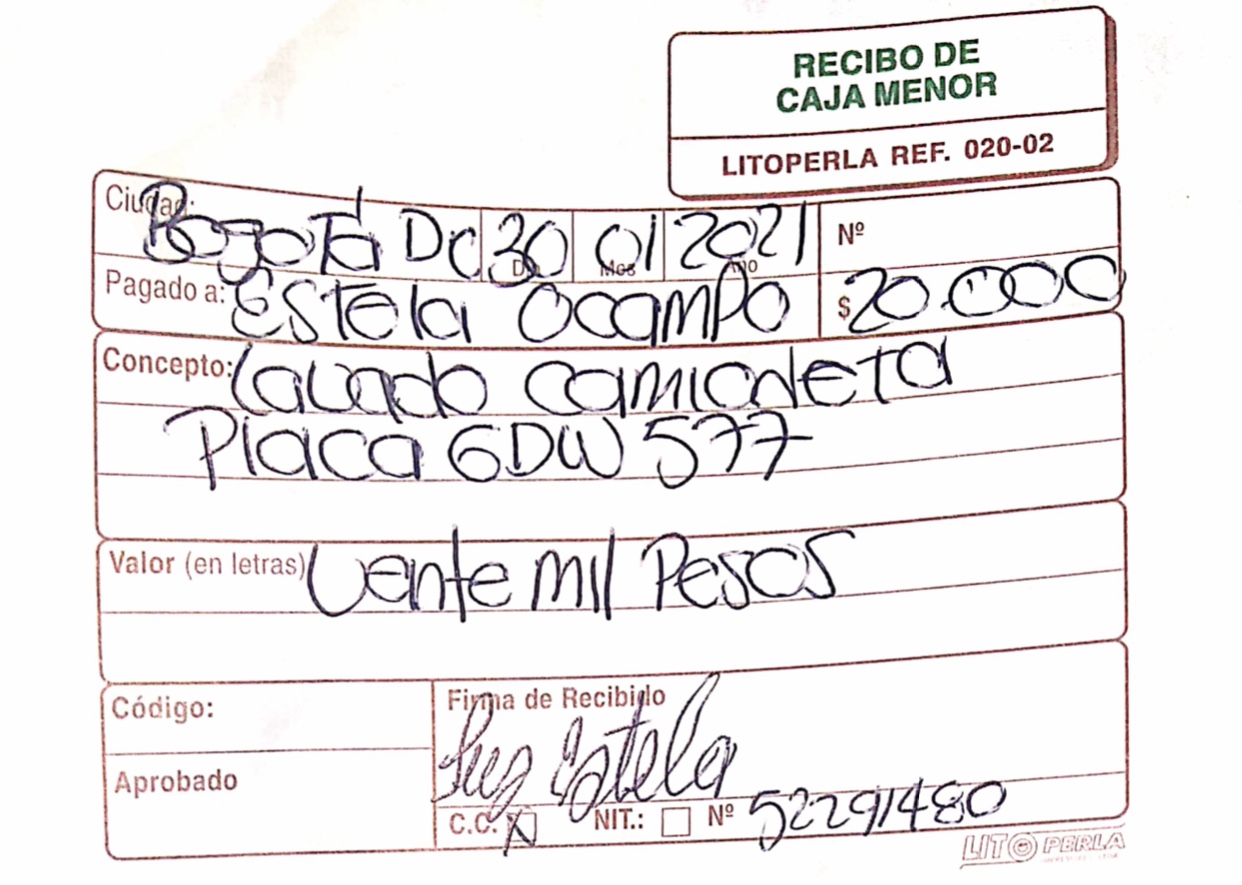 RECIBO DE
CAJA MENOR
LITOPERLA REF. 020-02
Ciudad: Bogotá DC 30 01 2021 Nº
Día Mes Año
Pagado a: Estela Ocampo $ 20.000
Concepto: Lavado camioneta
Placa GDW 577
Valor (en letras) Vente mil Pesos
Código:
Firma de Recibido
Luz Estela
Aprobado
C.C. X NIT.: Nº 52291480
LITOPERLA